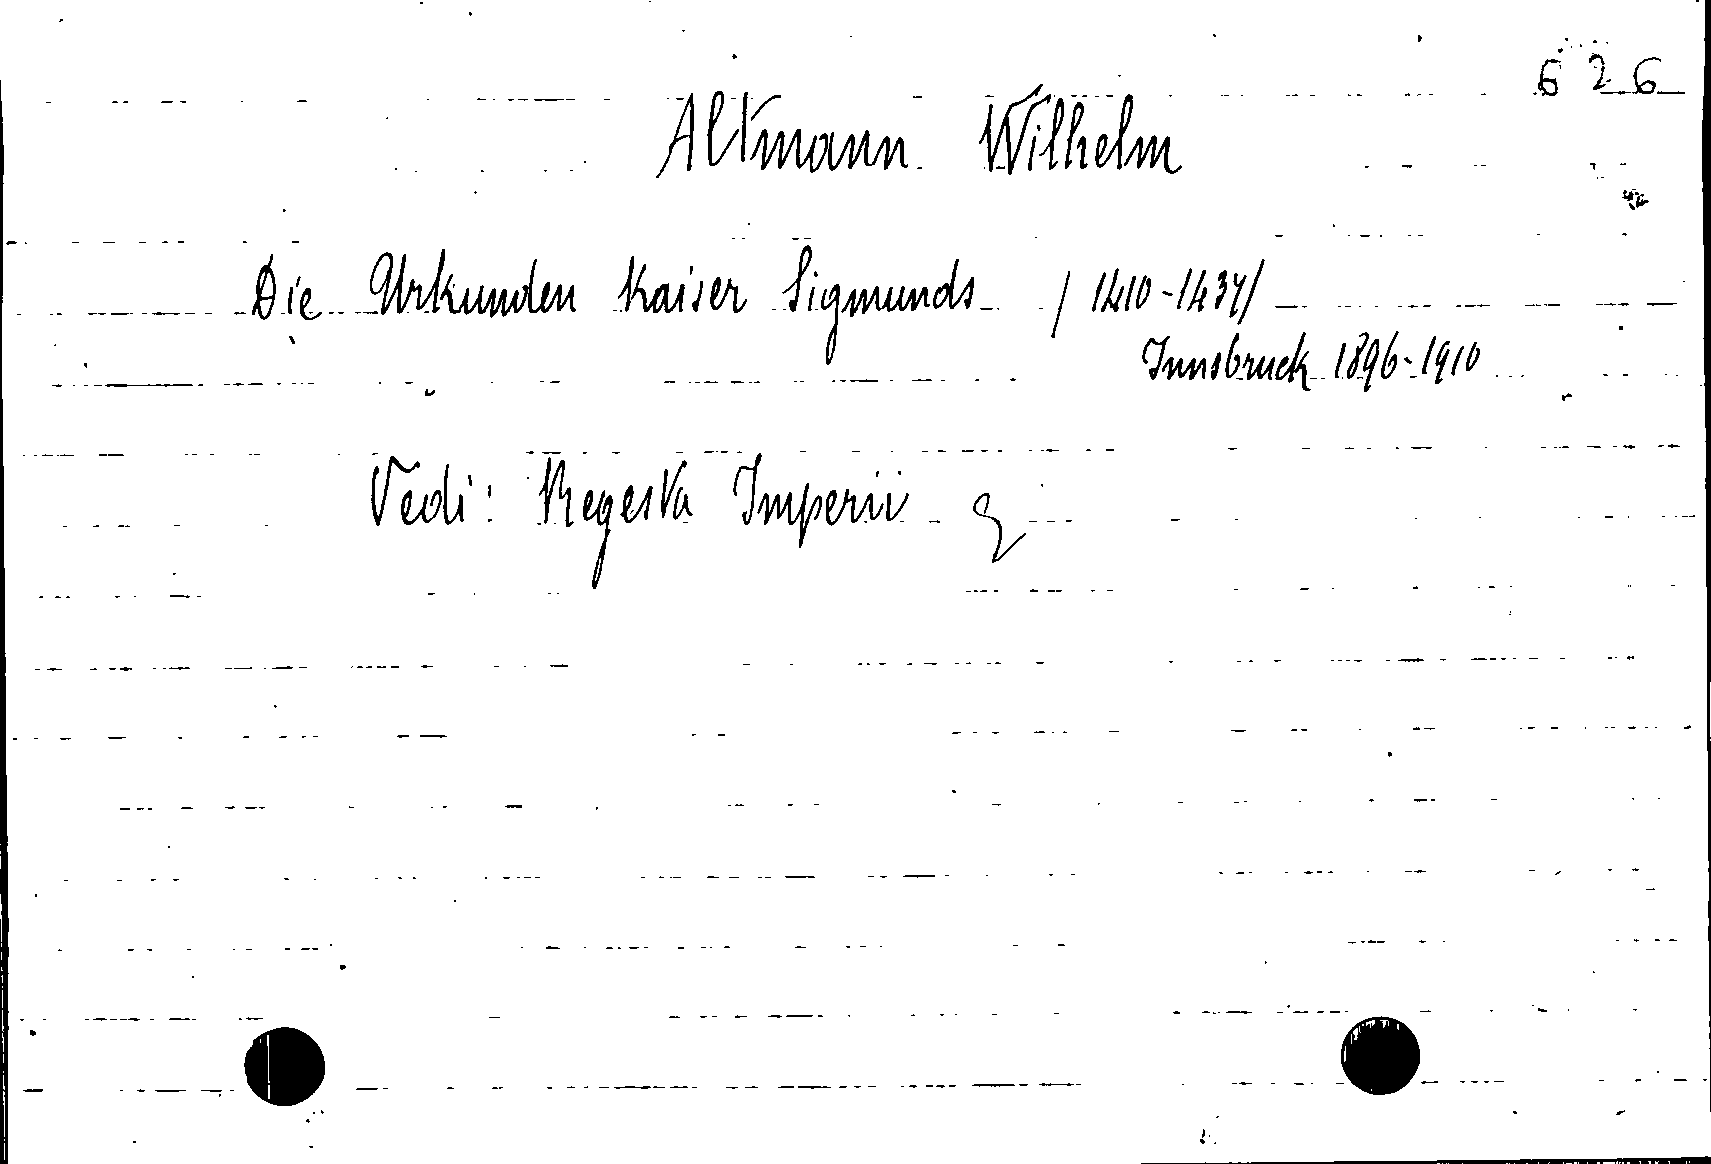 626
Altmann Wilhelm
Die Urkunden Kaiser Sigmunds /1410-1437/
Innsbruck 1896-1910
Vedi: Regesta Imperii